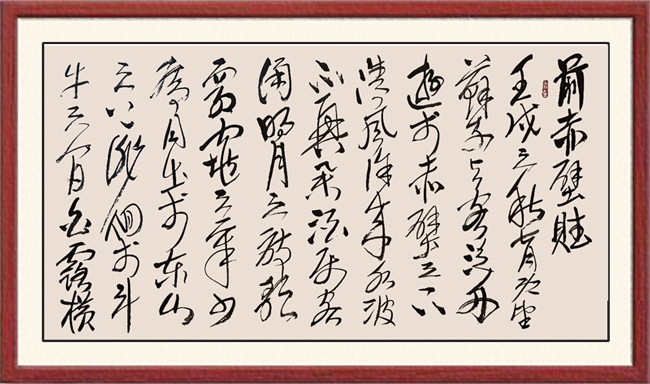 前赤壁賦
壬戌之秋七月既望
蘇子与客泛舟
遊于赤壁之下
清風徐来水波
不興举酒属客
诵明月之诗歌
窈窕之章少
焉月出于东山
之上徘徊于斗
牛之间白露横